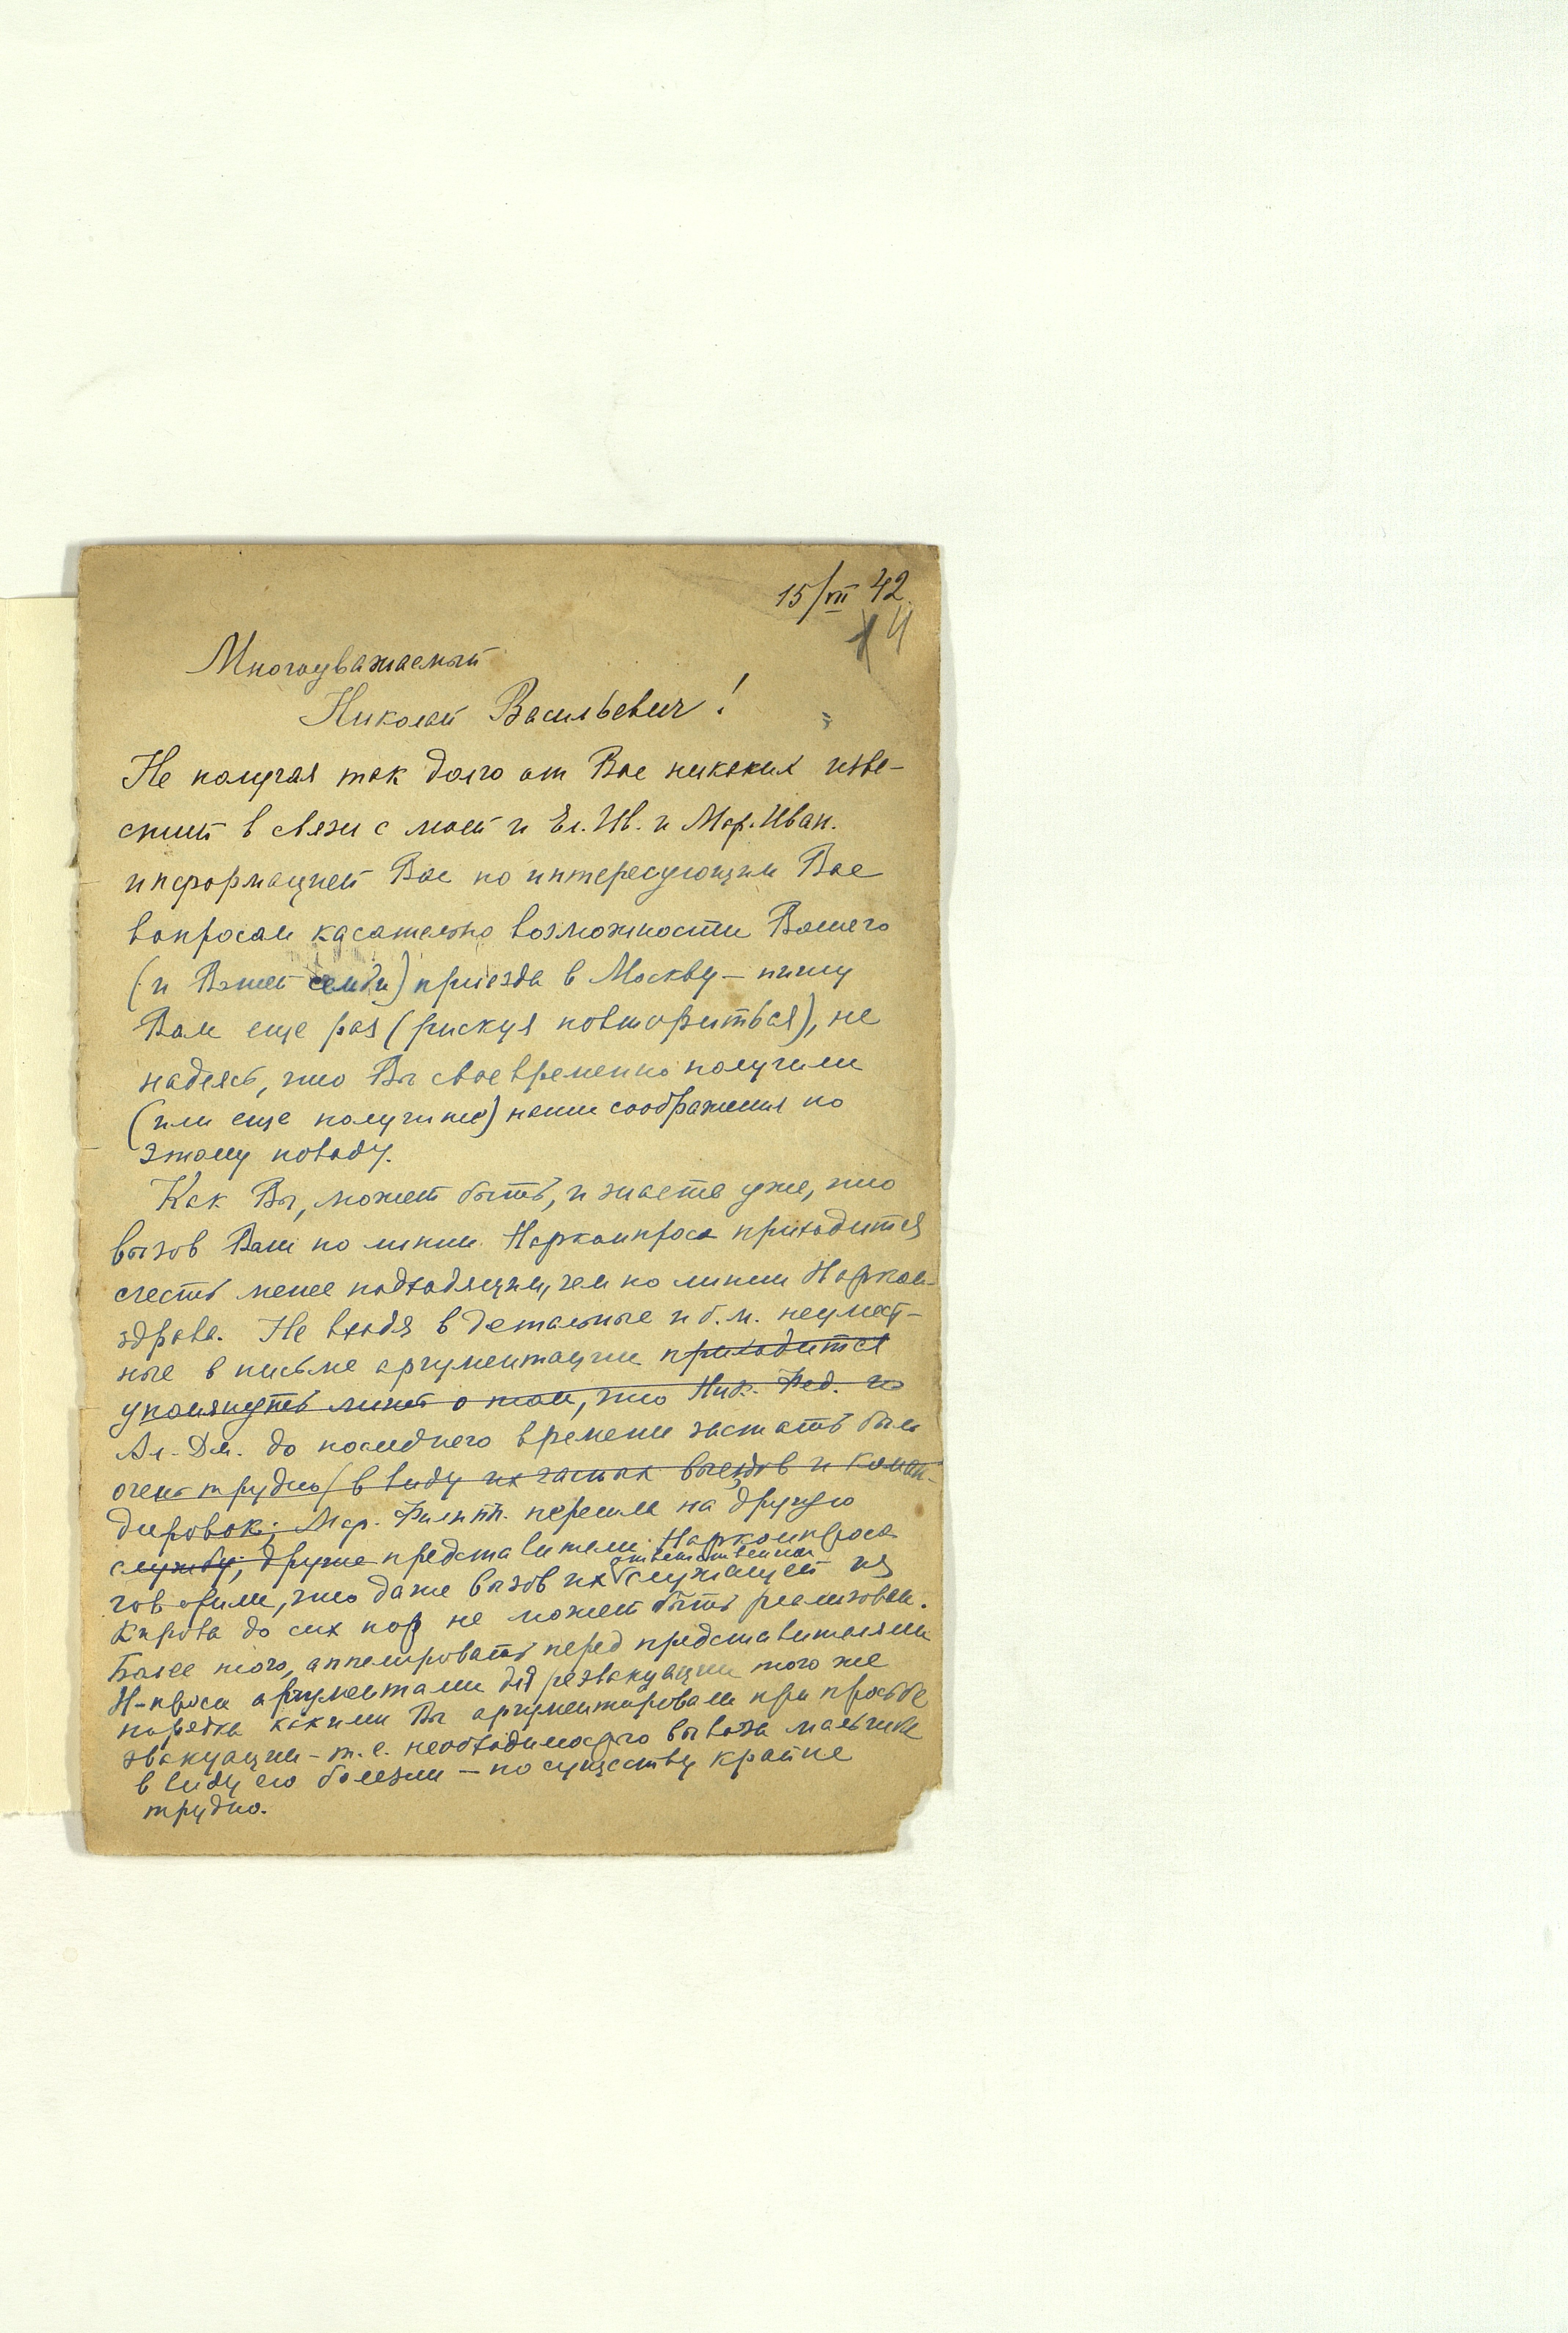 15/VII 42
4
Многоуважаемый
Николай Васильевич!
Не получая так долго от Вас никаких изве-
стий в связи с моей и Ел. Ив. и Мар. Иван.
информацией Вас по интересующим Вас
вопросам касательно возможности Вашего
(и Вашей семьи) приезда в Москву – пишу
Вам еще раз (рискуя повториться), не
надеясь, что Вы своевременно получили
(или еще получите) наши соображения по
этому поводу.
Как Вы, может быть, и знаете уже, что
вызов Вам по линии Наркомпроса приходится
счесть менее подходящим, чем по линии Нарком-
здрава. Не входя в детальные и б. м. неумест-
ные в письме аргументации приходится
упомянуть лишь о том, что Ник. Фед. и
Ал. Дм. до последнего времени застать было
очень трудно (в виду их частых выездов и коман-
дировок; Мар. Филипп. перешла на другую
службу; другие представители Наркомпроса
говорили, что даже вызов их ответственной служащей из
Кирова до сих пор не может быть реализован.
Более того, аппелировать перед представителями
Н-проса аргументами для реэвакуации того же
порядка какими Вы аргументировали при просьбе
эвакуации – т. е. необходимого вывоза мальчика
в виду его болезни – по существу крайне
трудно.